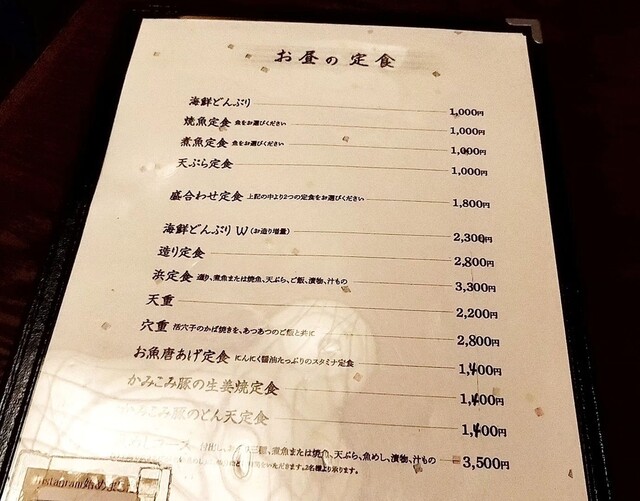 お昼の定食
海鮮どんぶり 1,000円
焼魚定食 魚をお選びください 1,000円
煮魚定食 魚をお選びください 1,000円
天ぷら定食 1,000円
盛合わせ定食 上記の中より2つの定食をお選びください 1,800円
海鮮どんぶりW(お造り増量) 2,300円
造り定食 2,800円
浜定食 造り、煮魚または焼魚、天ぷら、ご飯、漬物、汁もの 3,300円
天重 2,200円
穴重 活穴子のかば焼きを、あつあつのご飯と共に 2,800円
お魚唐あげ定食 にんにく醤油たっぷりのスタミナ定食 1,400円
かみこみ豚の生姜焼定食 1,400円
かみこみ豚のとん天定食 1,400円
煮魚または焼魚、天ぷら、魚めし、漬物、汁もの 3,500円
いただきます。2名様より承ります。